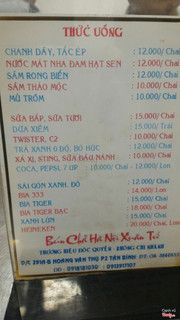 THỨC UỐNG
CHANH DÂY, TẮC ÉP : 12.000/ Chai
NƯỚC MÁT NHA ĐAM HẠT SEN : 12.000/ Chai
SÂM RONG BIỂN : 12.000/ Chai
SÂM THẢO MỘC : 10.000/ Chai
MỦ TRÔM : 10.000/ Chai
SỮA BẮP, SỮA TƯƠI : 15.000/ Chai
DỪA XIÊM : 15.000/ Trái
TWISTER, C2 : 10.000/ Chai
TRÀ XANH O ĐỘ, BÒ HÚC : 12.000/ Chai
XÁ XỊ, STING, SỮA ĐẬU NÀNH : 10.000/ Chai
COCA, PEPSI, 7 UP : 10.000/ Chai - 12.000/ Lon
SÀI GÒN XANH, ĐỎ : 12.000/ Chai
BIA 333 : 14.000/ Lon
BIA TIGER : 15.000/ Chai
BIA TIGER BẠC : 18.000/ Chai
XANH LÙN : 15.000/ Chai
HEINEKEN : 20.000/ Chai, Lon
Bún Chả Hà Nội Xuân Tứ
THƯƠNG HIỆU ĐỘC QUYỀN - KHÔNG CHI NHÁNH
Đ/C 291A-B HOÀNG VĂN THỤ P2 TÂN BÌNH